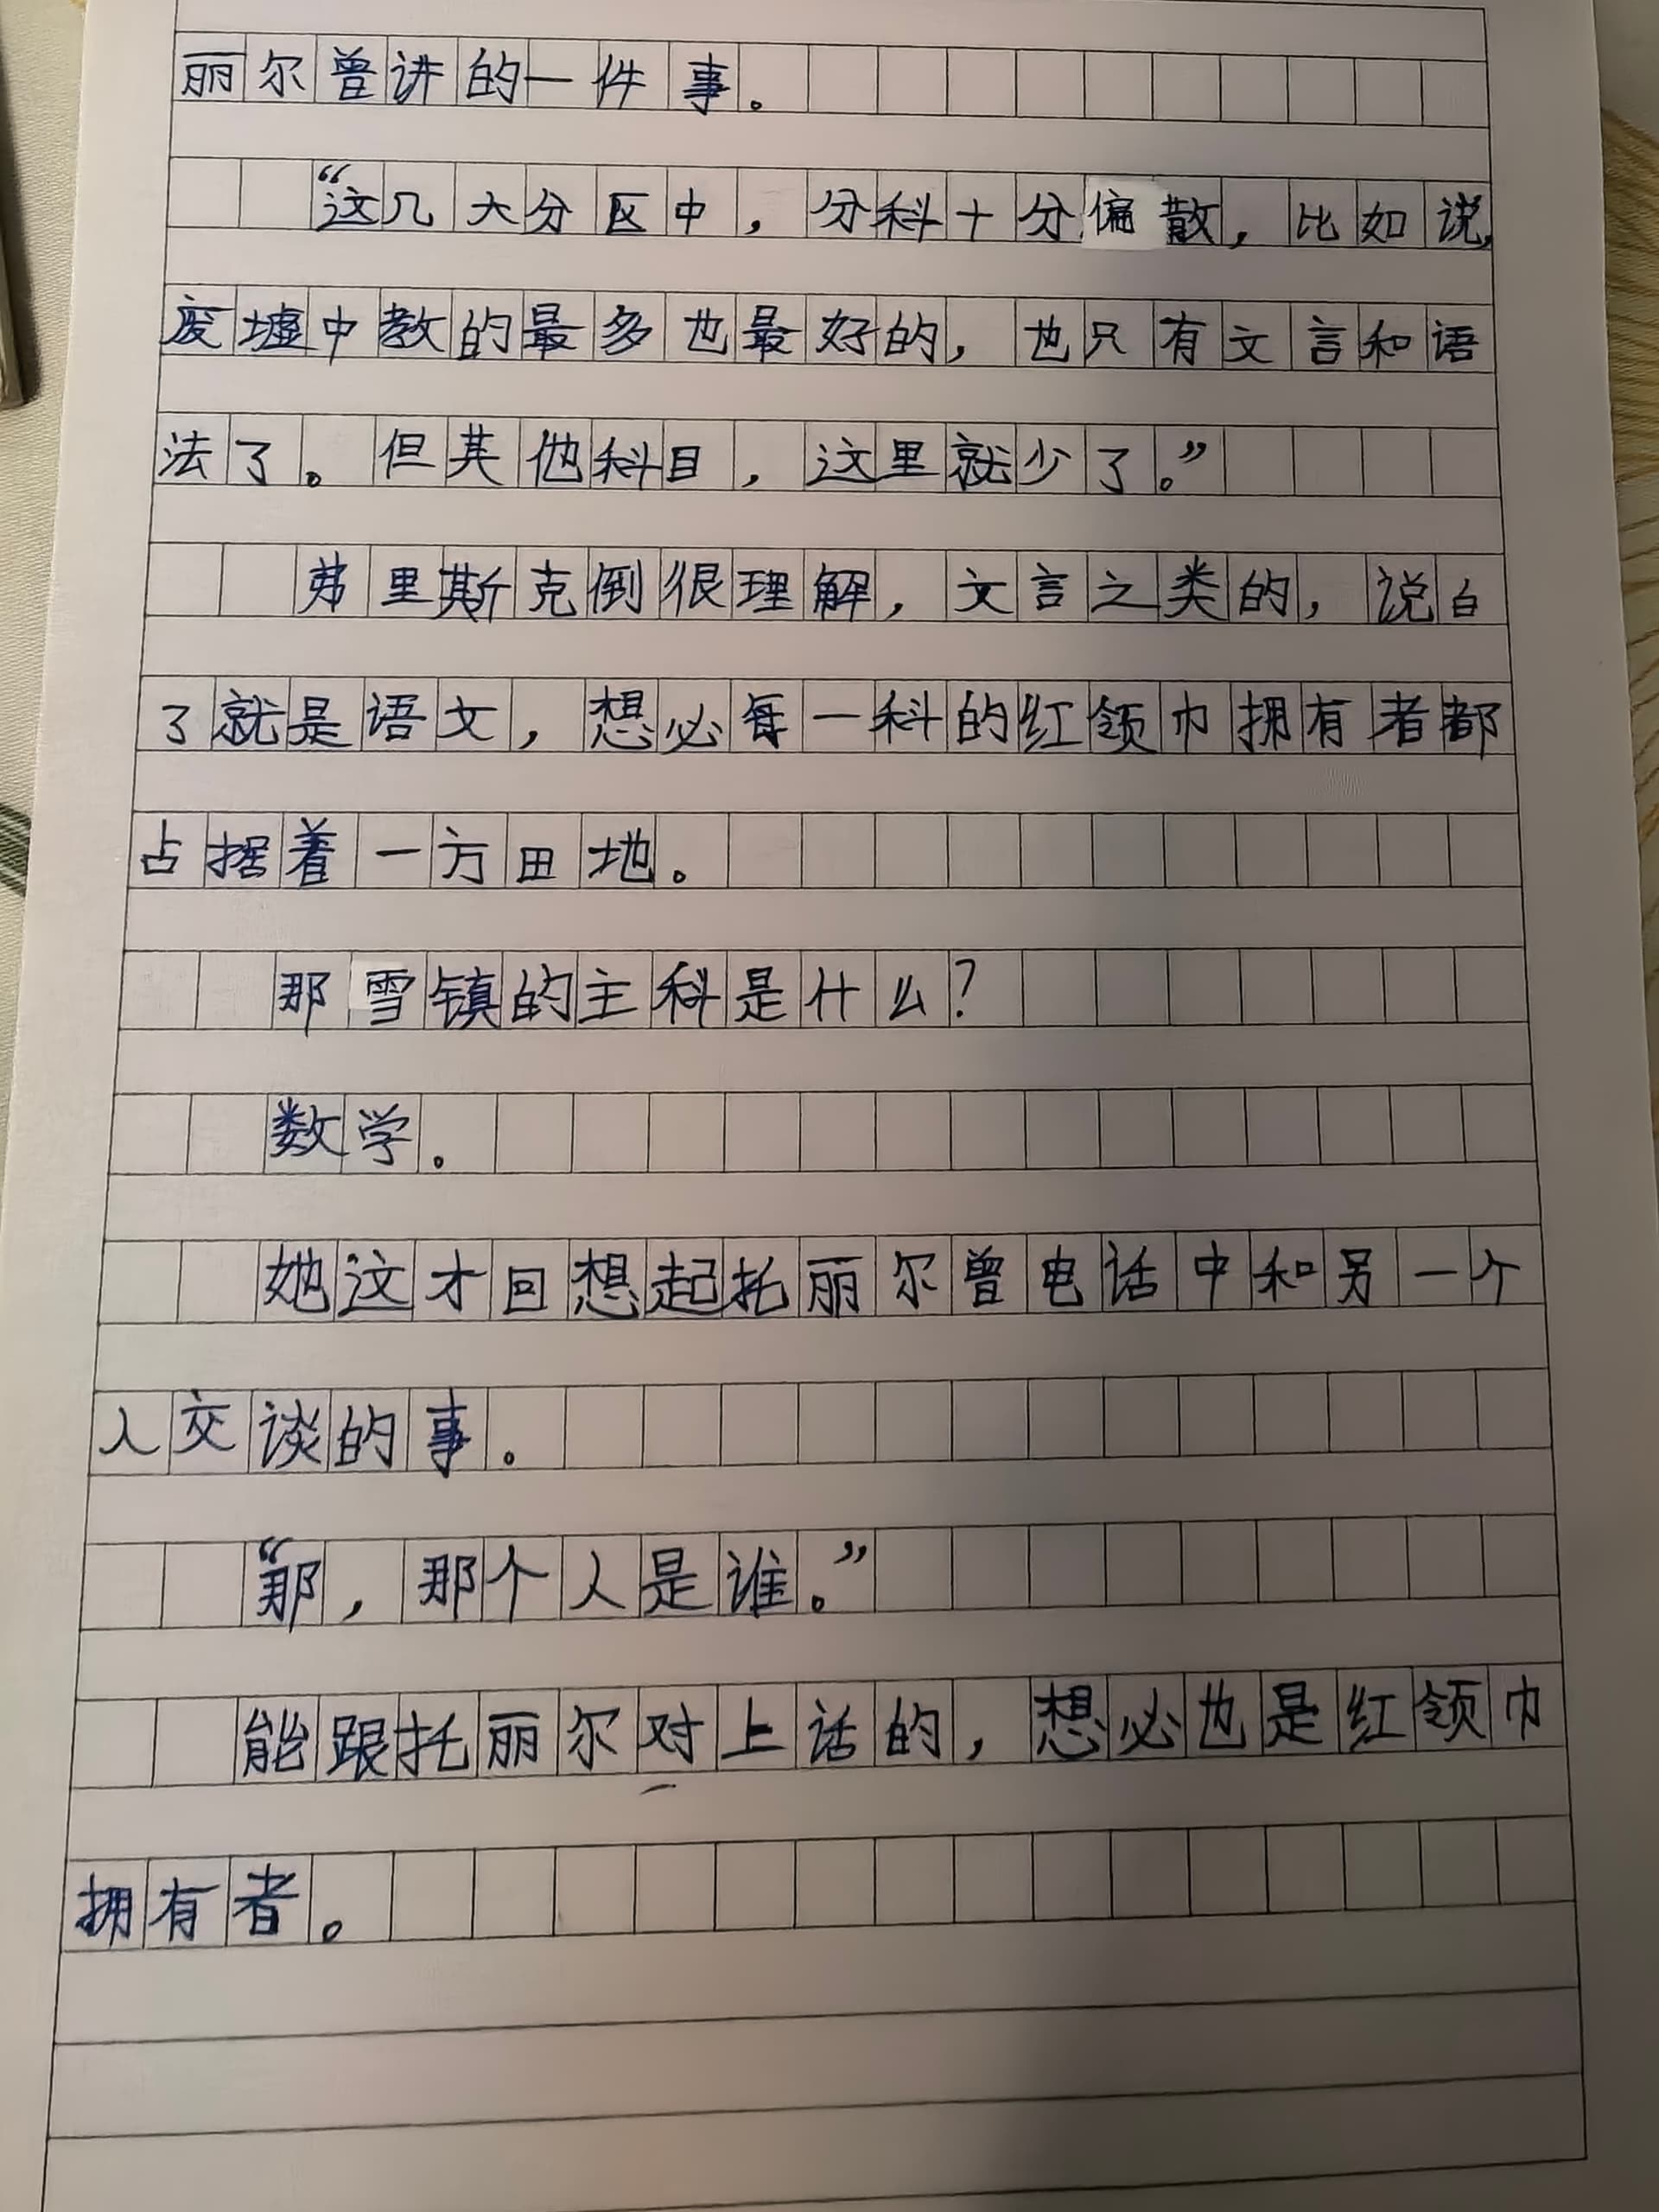 丽尔曾讲的一件事。
“这几大分区中，分科十分偏散，比如说，
废墟中教的最多也最好的，也只有文言和语
法了。但其他科目，这里就少了。”
弗里斯克倒很理解，文言之类的，说白
了就是语文，想必每一科的红领巾拥有者都
占据着一方田地。
那雪镇的主科是什么？
数学。
她这才回想起托丽尔曾电话中和另一个
人交谈的事。
“那，那个人是谁。”
能跟托丽尔对上话的，想必也是红领巾
拥有者。